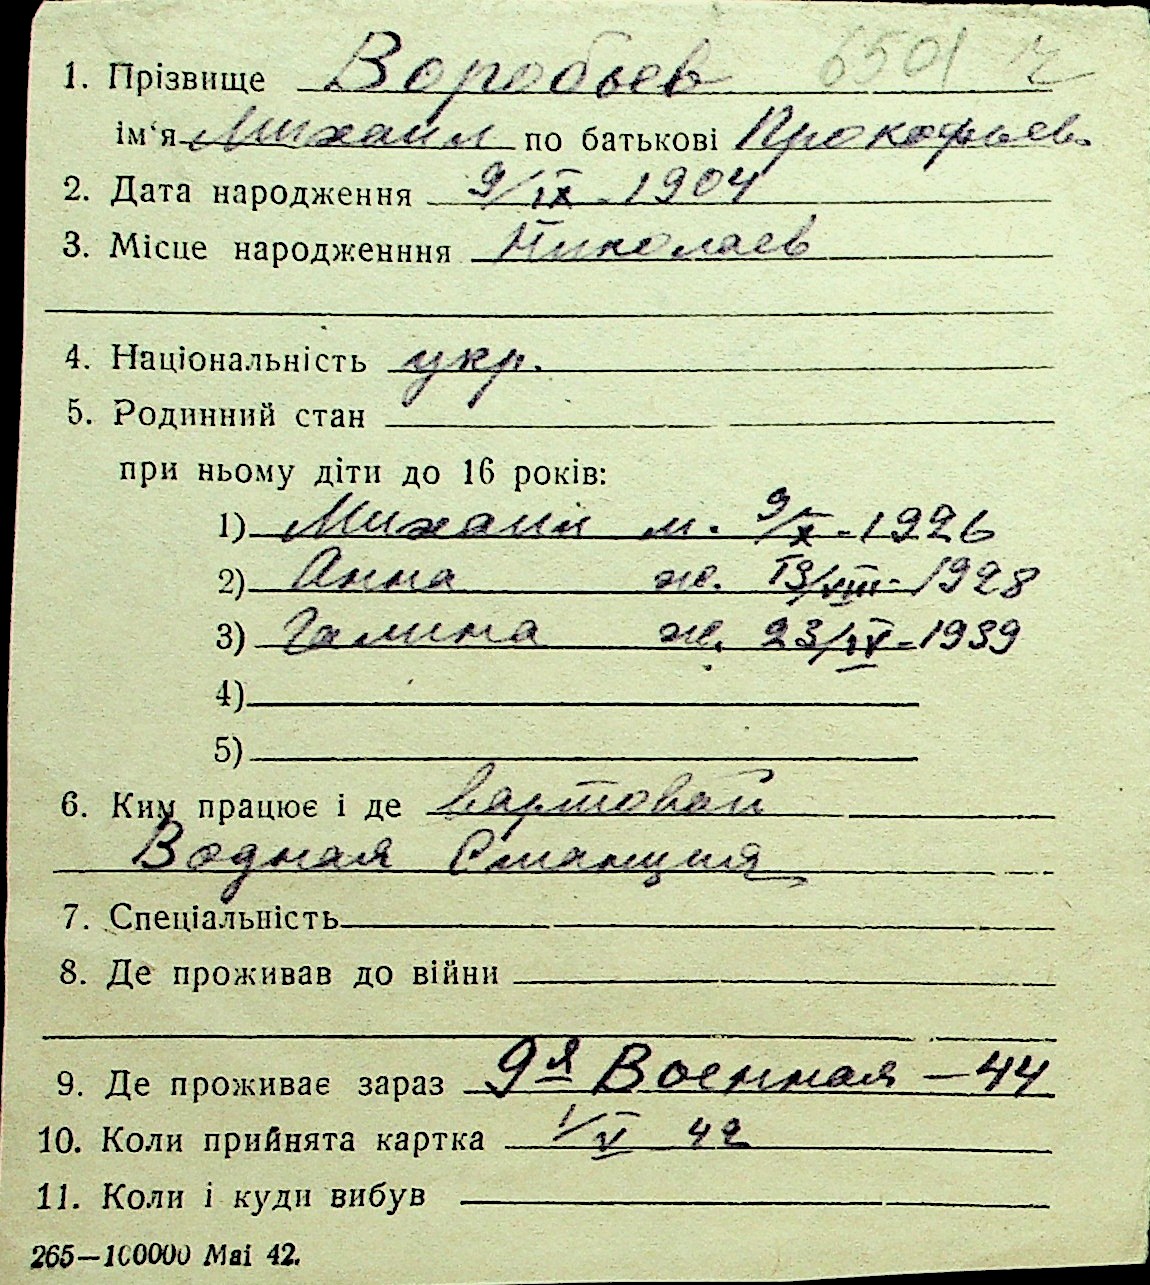 1. Прізвище Воробьев 6501
ім‘я Михаил по батькові Прокофьев.
2. Дата народження 9/IX - 1904
3. Місце народженння Николаев
4. Національність укр.
5. Родинний стан
при ньому діти до 16 років:
1) Михаил м. 9/X - 1926
2) Анна ж. 13/VIII - 1928
3) Галина ж. 23/IV - 1939
4)
5)
6. Ким працює і де вартовой
Водная Станция
7. Спеціальність
8. Де проживав до війни
9. Де проживає зараз 9я Военная - 44
10. Коли прийнята картка 1/V 42
11. Коли і куди вибув
265—100000 Маі 42.